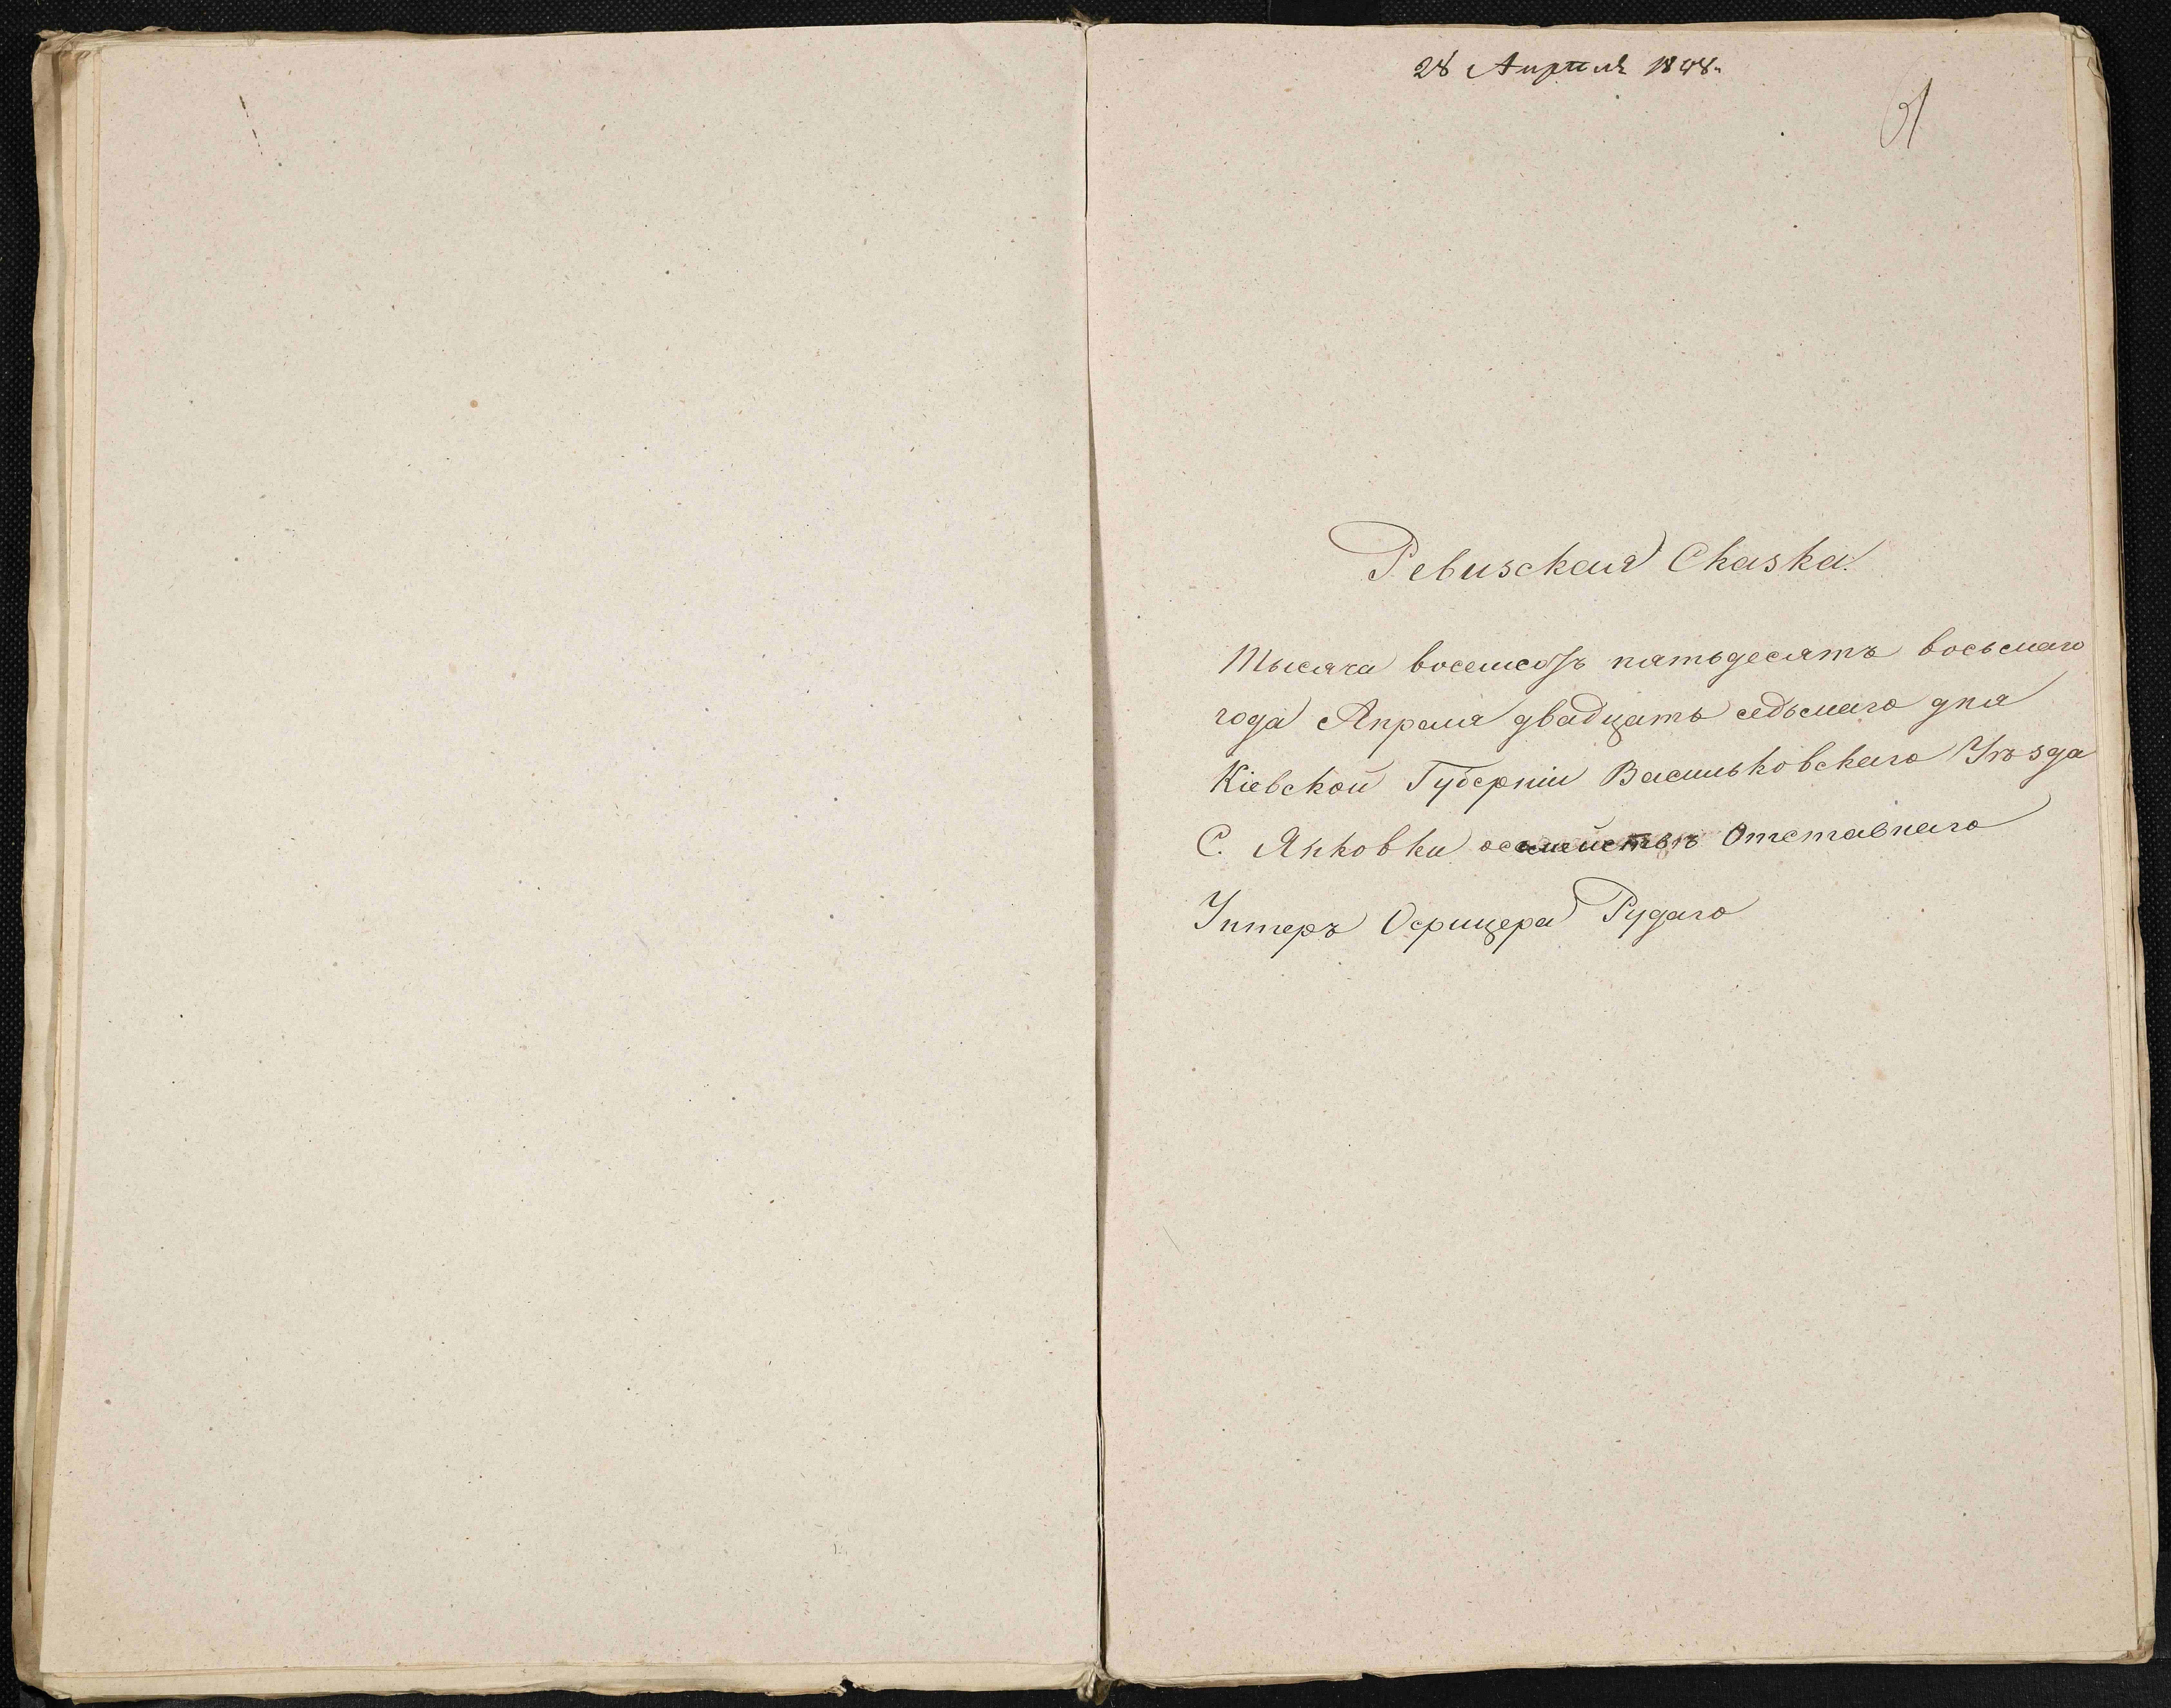 28 Апреля 1858.
61
Ревизская Сказка.
Тысяча восемсотъ пятьдесятъ восьмаго
года Апреля двадцать седьмаго дня
Кіевской Губерніи Васильковскаго Уѣзда
С. Янковки о семействѣ Отставнаго
Унтеръ Офицера Рудаго